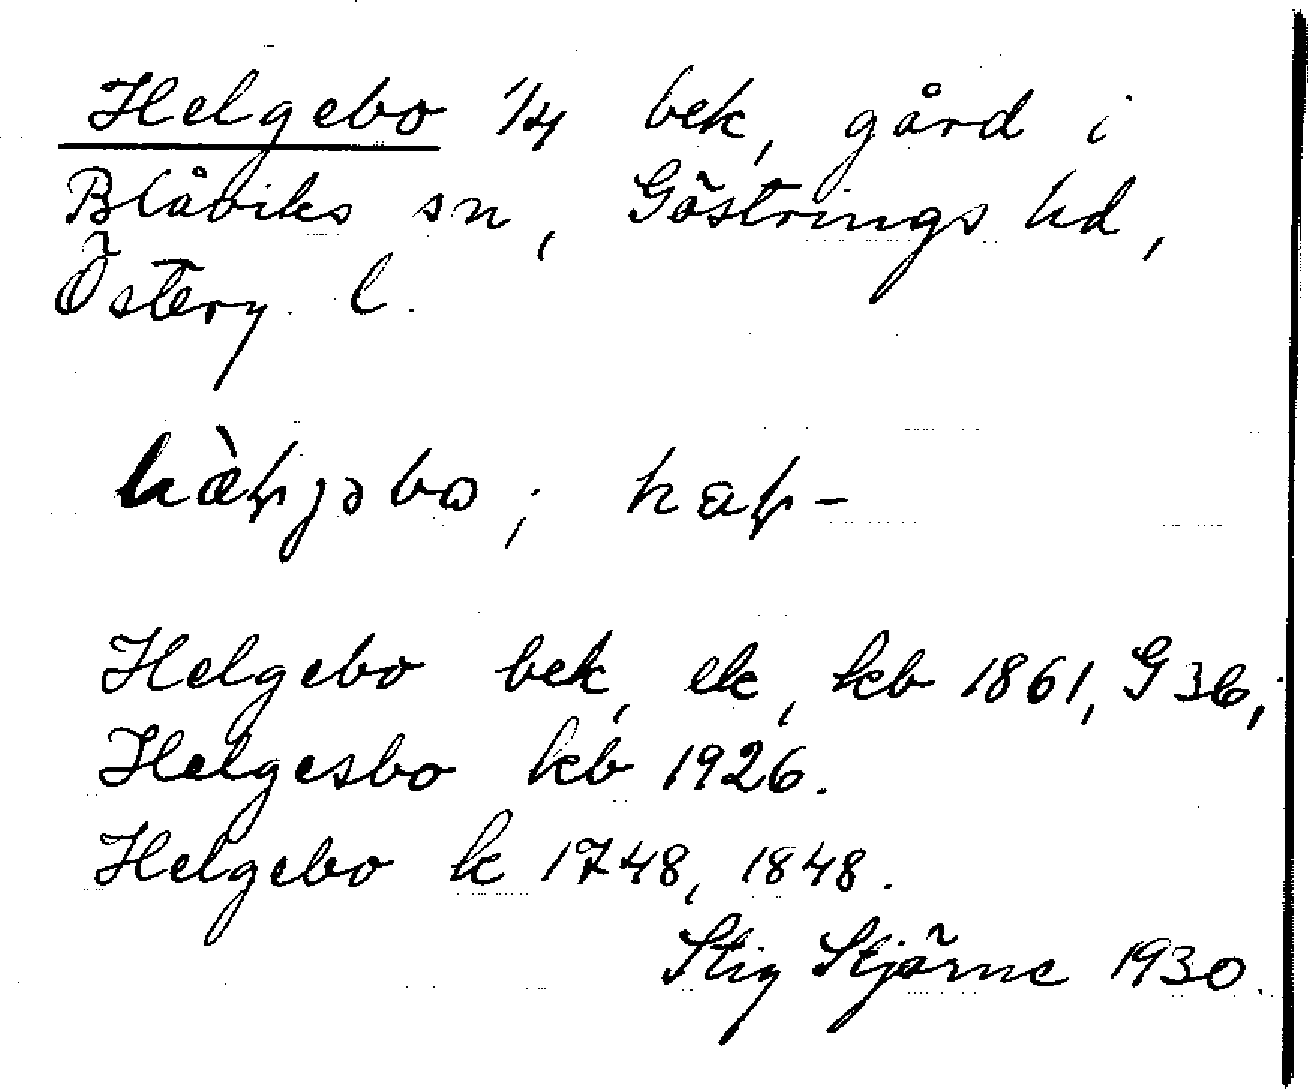 Helgebo 1/4 bek, gård i
Blåviks sn, Göstrings hd,
Österg. l.
Helgebo bek, ek, kb 1861, G 36,
Helgesbo kb 1926.
Helgebo k 1748, 1848.
Stig Stjärne 1930.